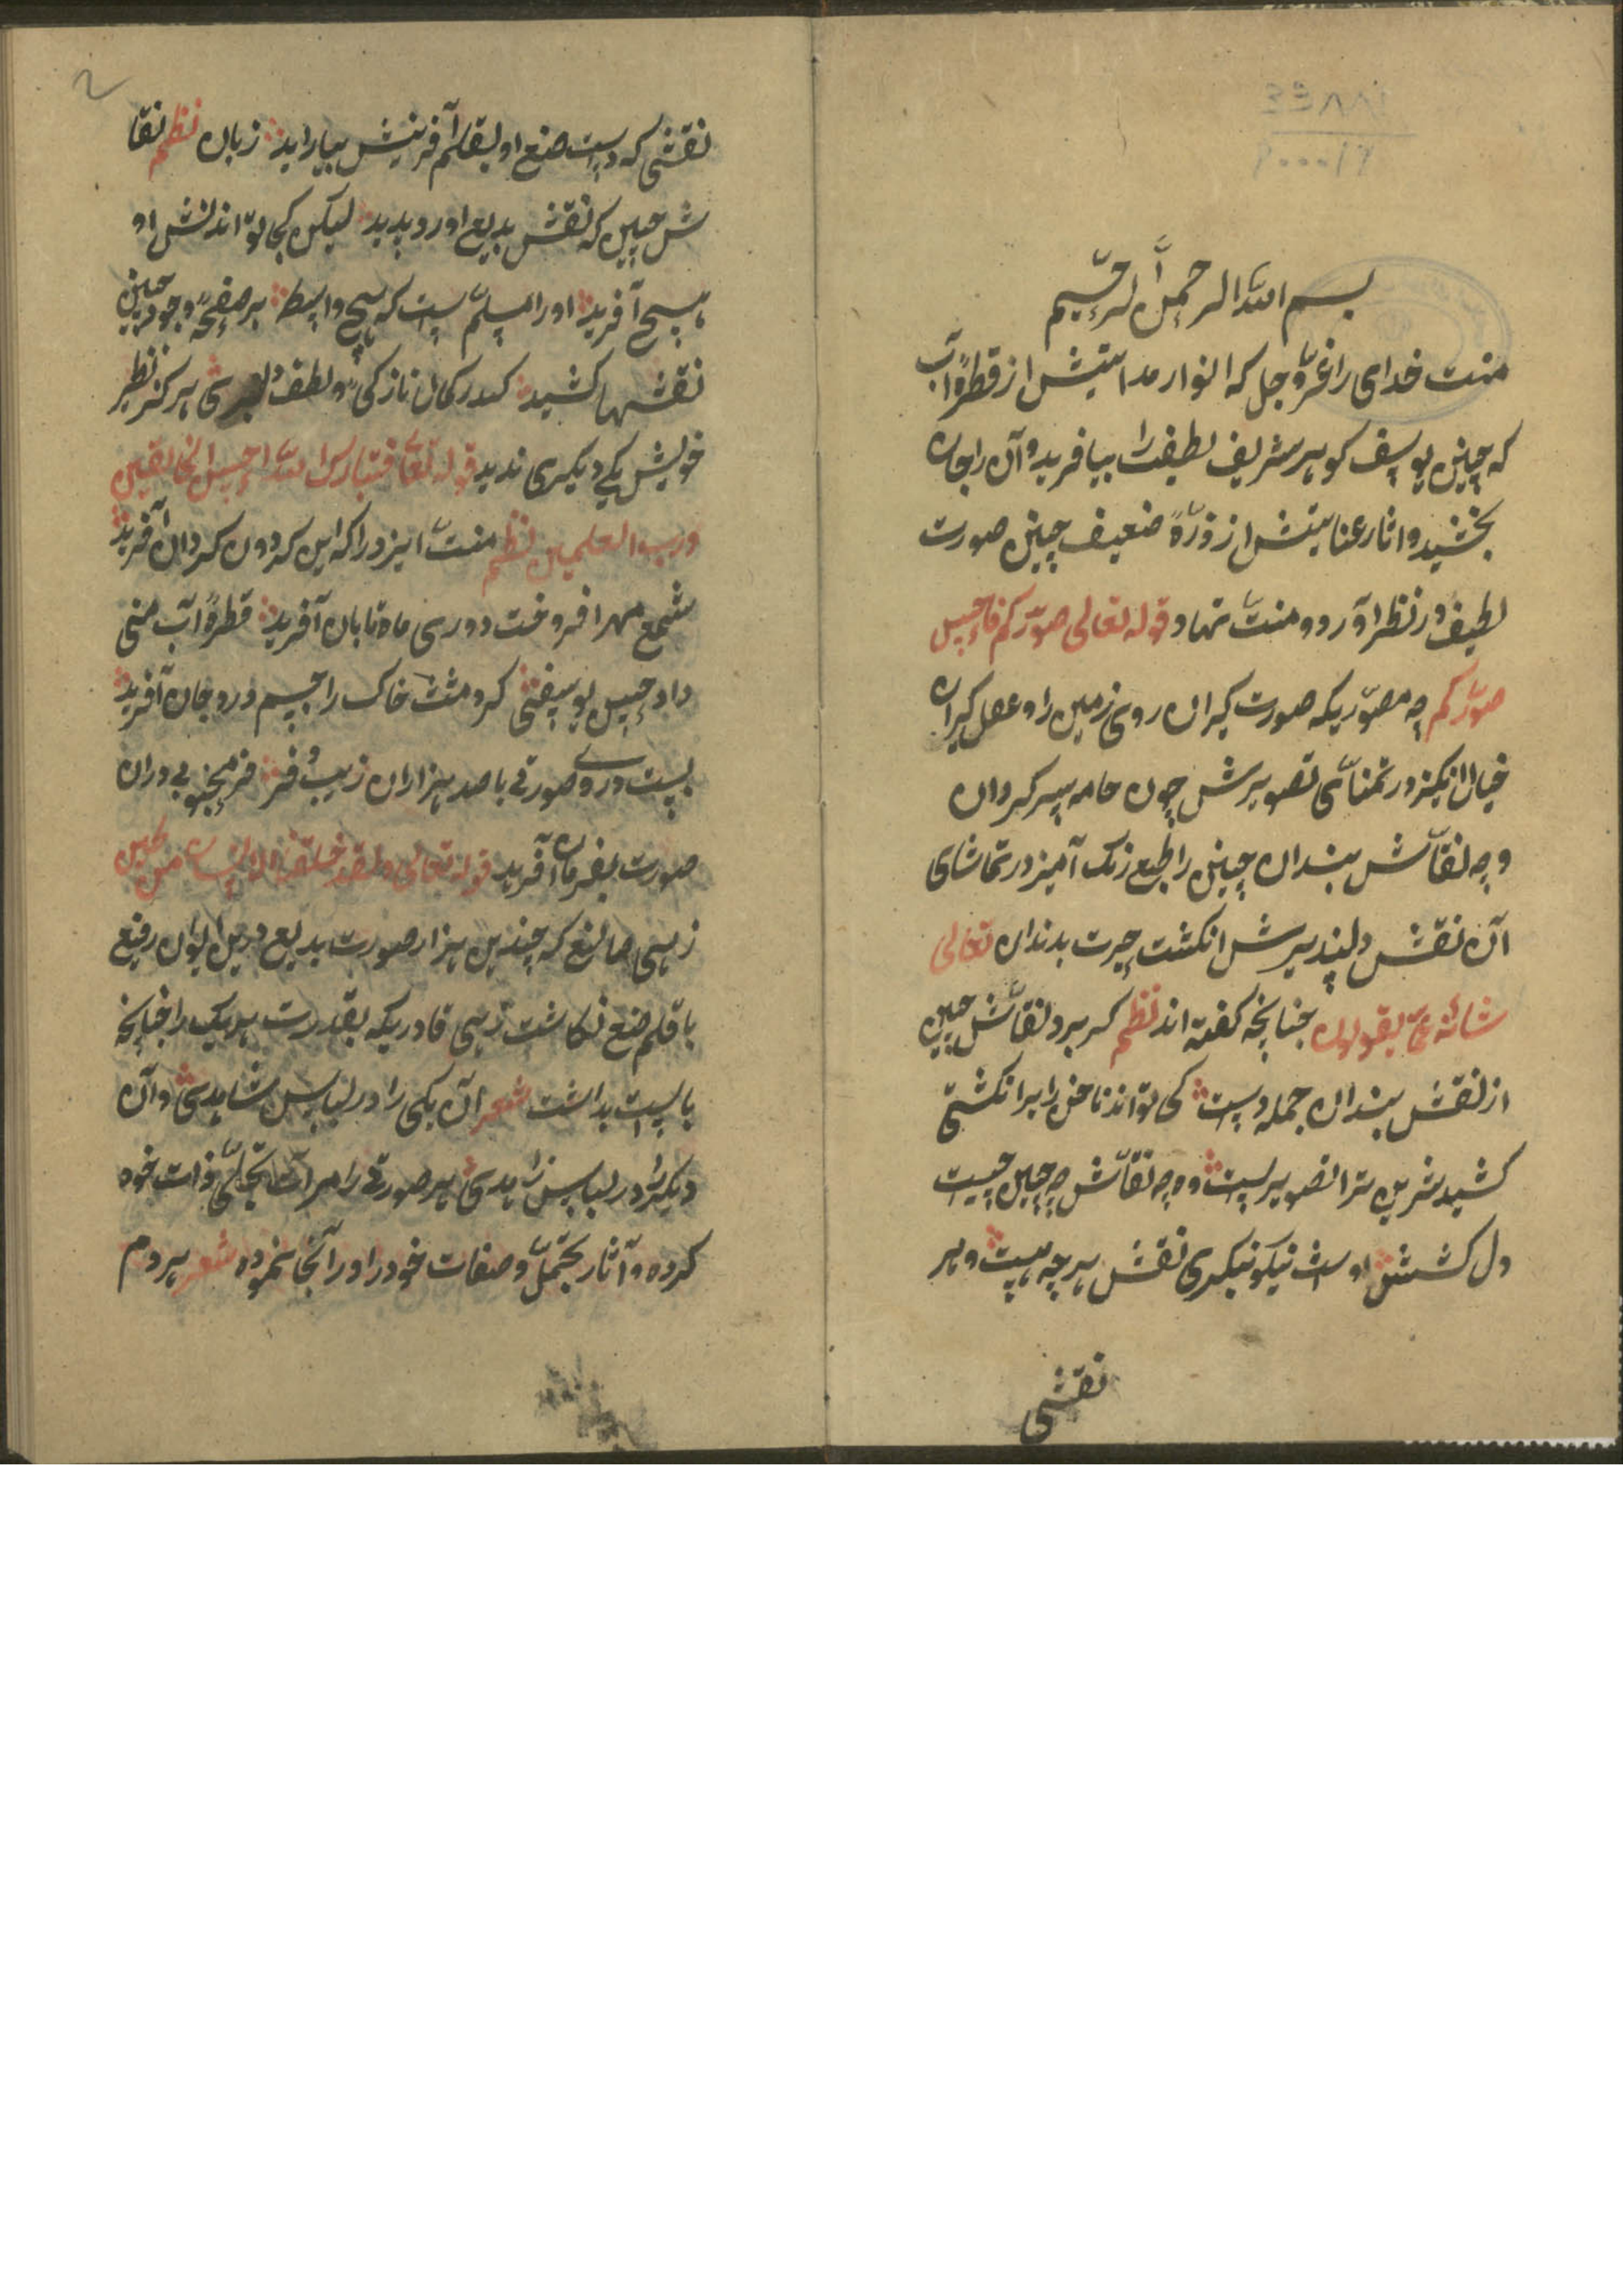 بسم الله الرحمن الرحیم
منت خدای را عزّ و جل که انوار هدایتش از قطرهٔ آب
که چنین یوسف کوهر شریف لطیفت را بیافرید و آن را جان
بخشید و اثار عنایتش از ذرّهٔ ضعیف چنین صورت
لطیف در نظر آورد و منتّ نهاد قوله تعالی صوّرکم فاحسن
صوّرکم چه مصوّریکه صورت کیران روی زمین را و عقل کیران
خیال انکیز در تمنّای تصویرش چون خامه سر کردان
و چه نقّاش بندان چینی را طبع رنک آمیز در تماشای
آن نقش دلپذیرش انکشت حیرت بدندان تعالی
شانه عمّا یقولون چنانچه کفته اند نظم کر برد نقّاش چین
از نقش بندان جمله دست کی تواند ناخن را بر انکشتی
کشید شرین ترا تصویر بست وه چه نقّاش چه چین چیست
دل کشش اوست نیکو نیکری نقش هر چه هست و هر
نقشی
نقشی که دست صنع او بقلم آفرینش بیاراید زبان نظم نقا
ش چین که نقش بدیع اورد پدید لیکن کجا تواند نقش او
هیچ آفرید اورا مسلّم ست که بیچ واسطه بر صفحهٔ وجود چنین
نقشها کشید که در کمال نازکی و لطف دلبری هر کز نظیر
خویش یکی دیکری ندید قوله تعالی فتبارک الله احسن الخالقین
و رب العلمین نظم منتّ ایزد را که این کردون کردان آفرید
شمع مهر افروخت دوری ماه تابان آفرید قطرهٔ آب منی
داد حسن یوسفی کرد مشت خاک را جسم درو جان آفرید
بست در وی صورتی با صد هزاران زیب و فر در محبوبی دران
صورت بفرمان آفرید قوله تعالی و لقد خلقنا الانسان من طین
زهی صانع که چندین هزار صورت بدیع درین ایوان رفیع
با قلم صنع نکاشت زهی قادریکه بقدرت هر یک را چنانچه
بایست بداشت شعر آن یکی را در لباس شاهدی و آن
دیکر را در لباس زاهدی هر صورتی را مرات تجلّی ذات خود
کرده و آثار تجمّل و صفات خود را در آنجا نموده شعر هر دم